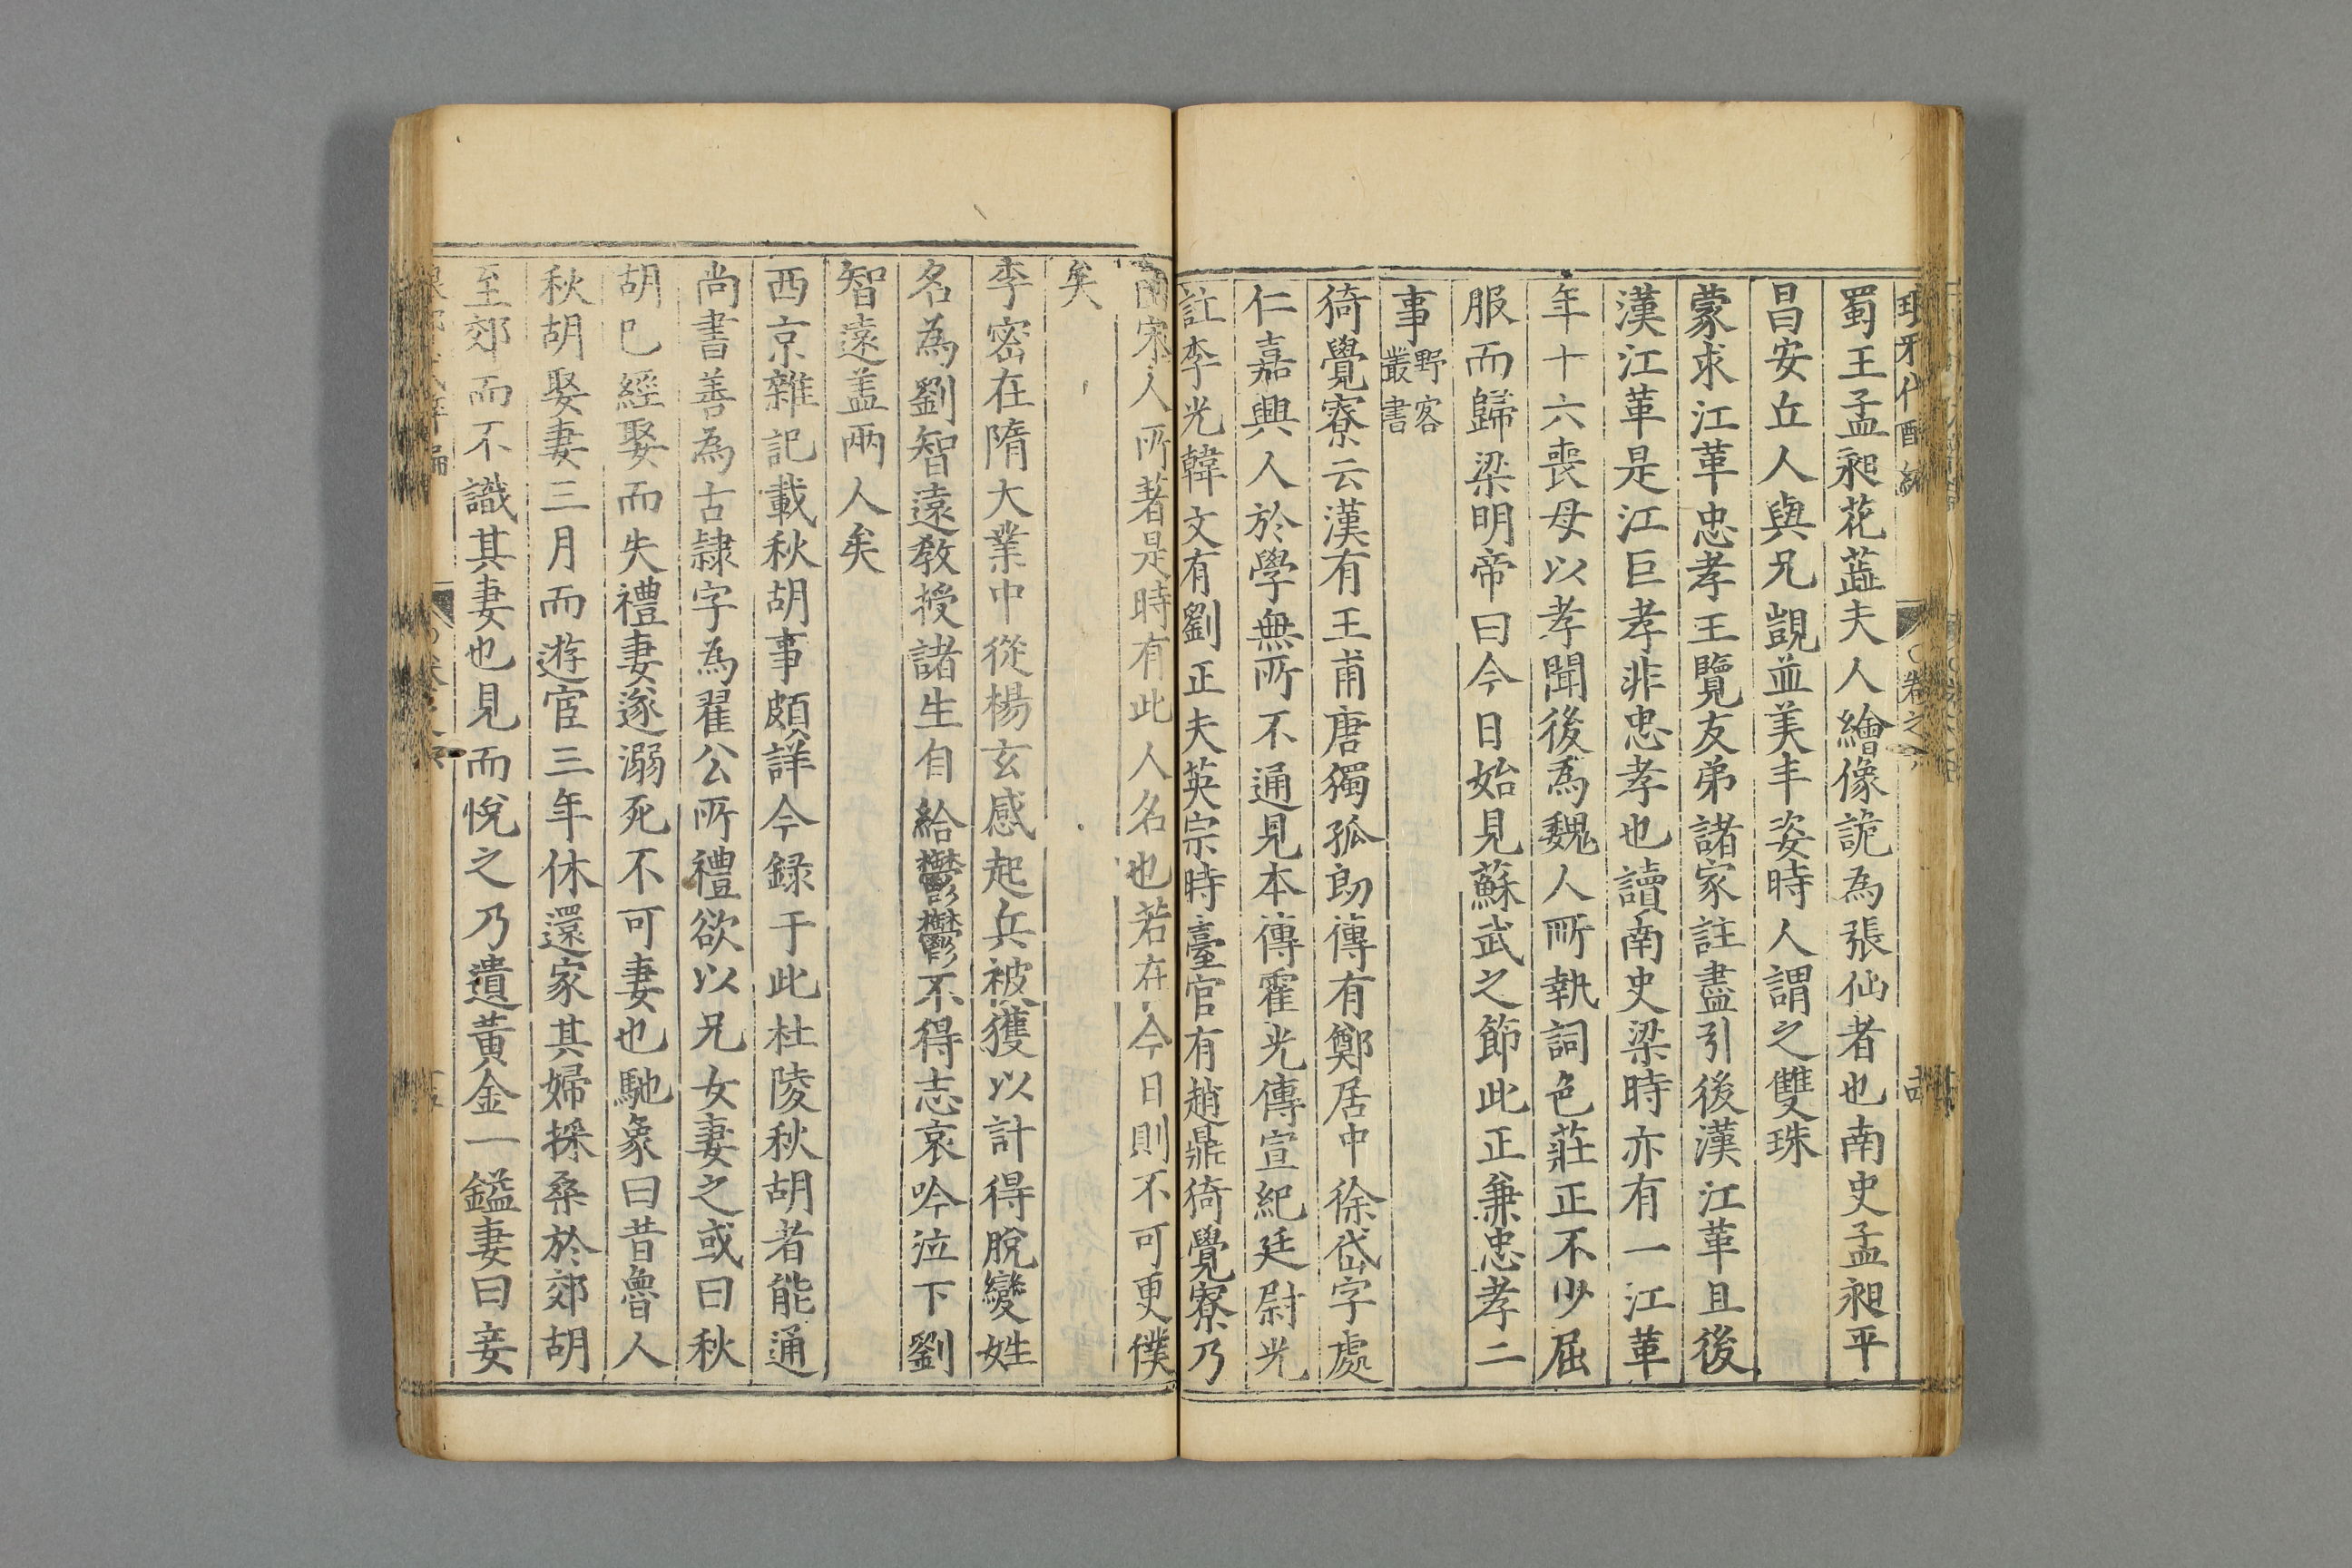 蜀王孟昶花蕊夫人繪像詭為張仙者也南史孟昶平
昌安丘人與兄顗並美丰姿時人謂之雙珠
蒙求江革忠孝王覽友弟諸家註盡引後漢江革且後
漢江革是江巨孝非忠孝也讀南史梁時亦有一江革
年十六喪母以孝聞後為魏人所執詞色莊正不少屈
服而歸梁明帝曰今日始見蘇武之節此正兼忠孝二
事野客叢書
猗覺寮云漢有王甫唐獨孤郎傳有鄭居中徐岱字處
仁嘉興人於學無所不通見本傳霍光傳宣紀廷尉光
註李光韓文有劉正夫英宗時臺官有趙鼎猗覺寮乃
宋人所著是時有此人名也若在今日則不可更僕
矣
李密在隋大業中從楊玄感起兵被獲以計得脫變姓
名為劉智遠教授諸生自給鬱鬱不得志哀吟泣下劉
智遠盖兩人矣
西京雜記載秋胡事頗詳今録于此杜陵秋胡者能通
尚書善為古隷字為翟公所禮欲以兄女妻之或曰秋
胡已經娶而失禮妻遂溺死不可妻也馳象曰昔魯人
秋胡娶妻三月而遊宦三年休還家其婦採桑於郊胡
至郊而不識其妻也見而悅之乃遺黃金一鎰妻曰妾